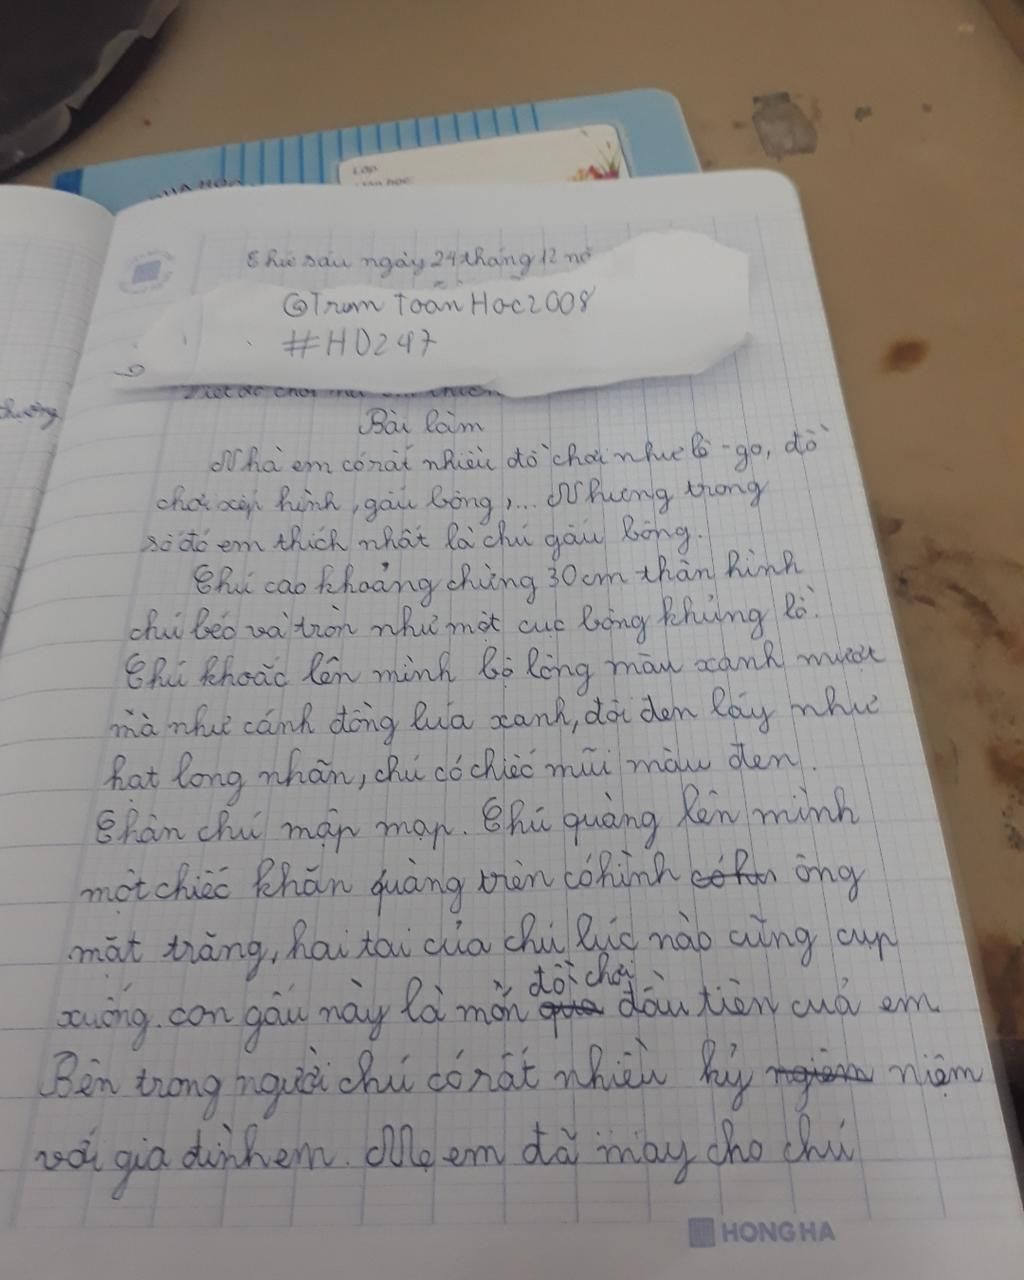 Lớp
Thứ sáu ngày 24 tháng 12 nă
@TrumToánHoc2008
#HD247
Bài làm
Nhà em có rất nhiều đồ chơi như lê-go, đồ
chơi xếp hình, gấu bông,... Nhưng trong
số đó em thích nhất là chú gấu bông.
Chú cao khoảng chừng 30cm thân hình
chú béo và tròn như một cục bông khủng lồ.
Chú khoác lên mình bộ lông màu xanh mượt
mà như cánh đồng lúa xanh, đôi đen láy như
hạt long nhãn, chú có chiếc mũi màu đen.
Chân chú mập mạp. Chú quàng lên mình
một chiếc khăn quàng trên có hình ông
mặt trăng, hai tai của chú lúc nào cũng cụp
xuống. con gấu này là món đồ chơi đầu tiên của em
Bên trong người chú có rất nhiều kỷ niệm
với gia đình em. Mẹ em đã may cho chú
HONG HA